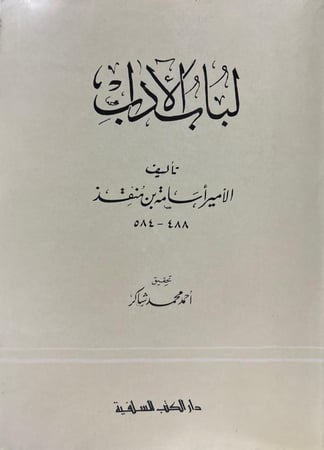 لُبَابُ الآدَابِ
تأليف
الأمير أسامة بن مُنقذ
٤٨٨ - ٥٨٤
تحقيق
أحمد محمد شاكر
دار الكتب السلفية